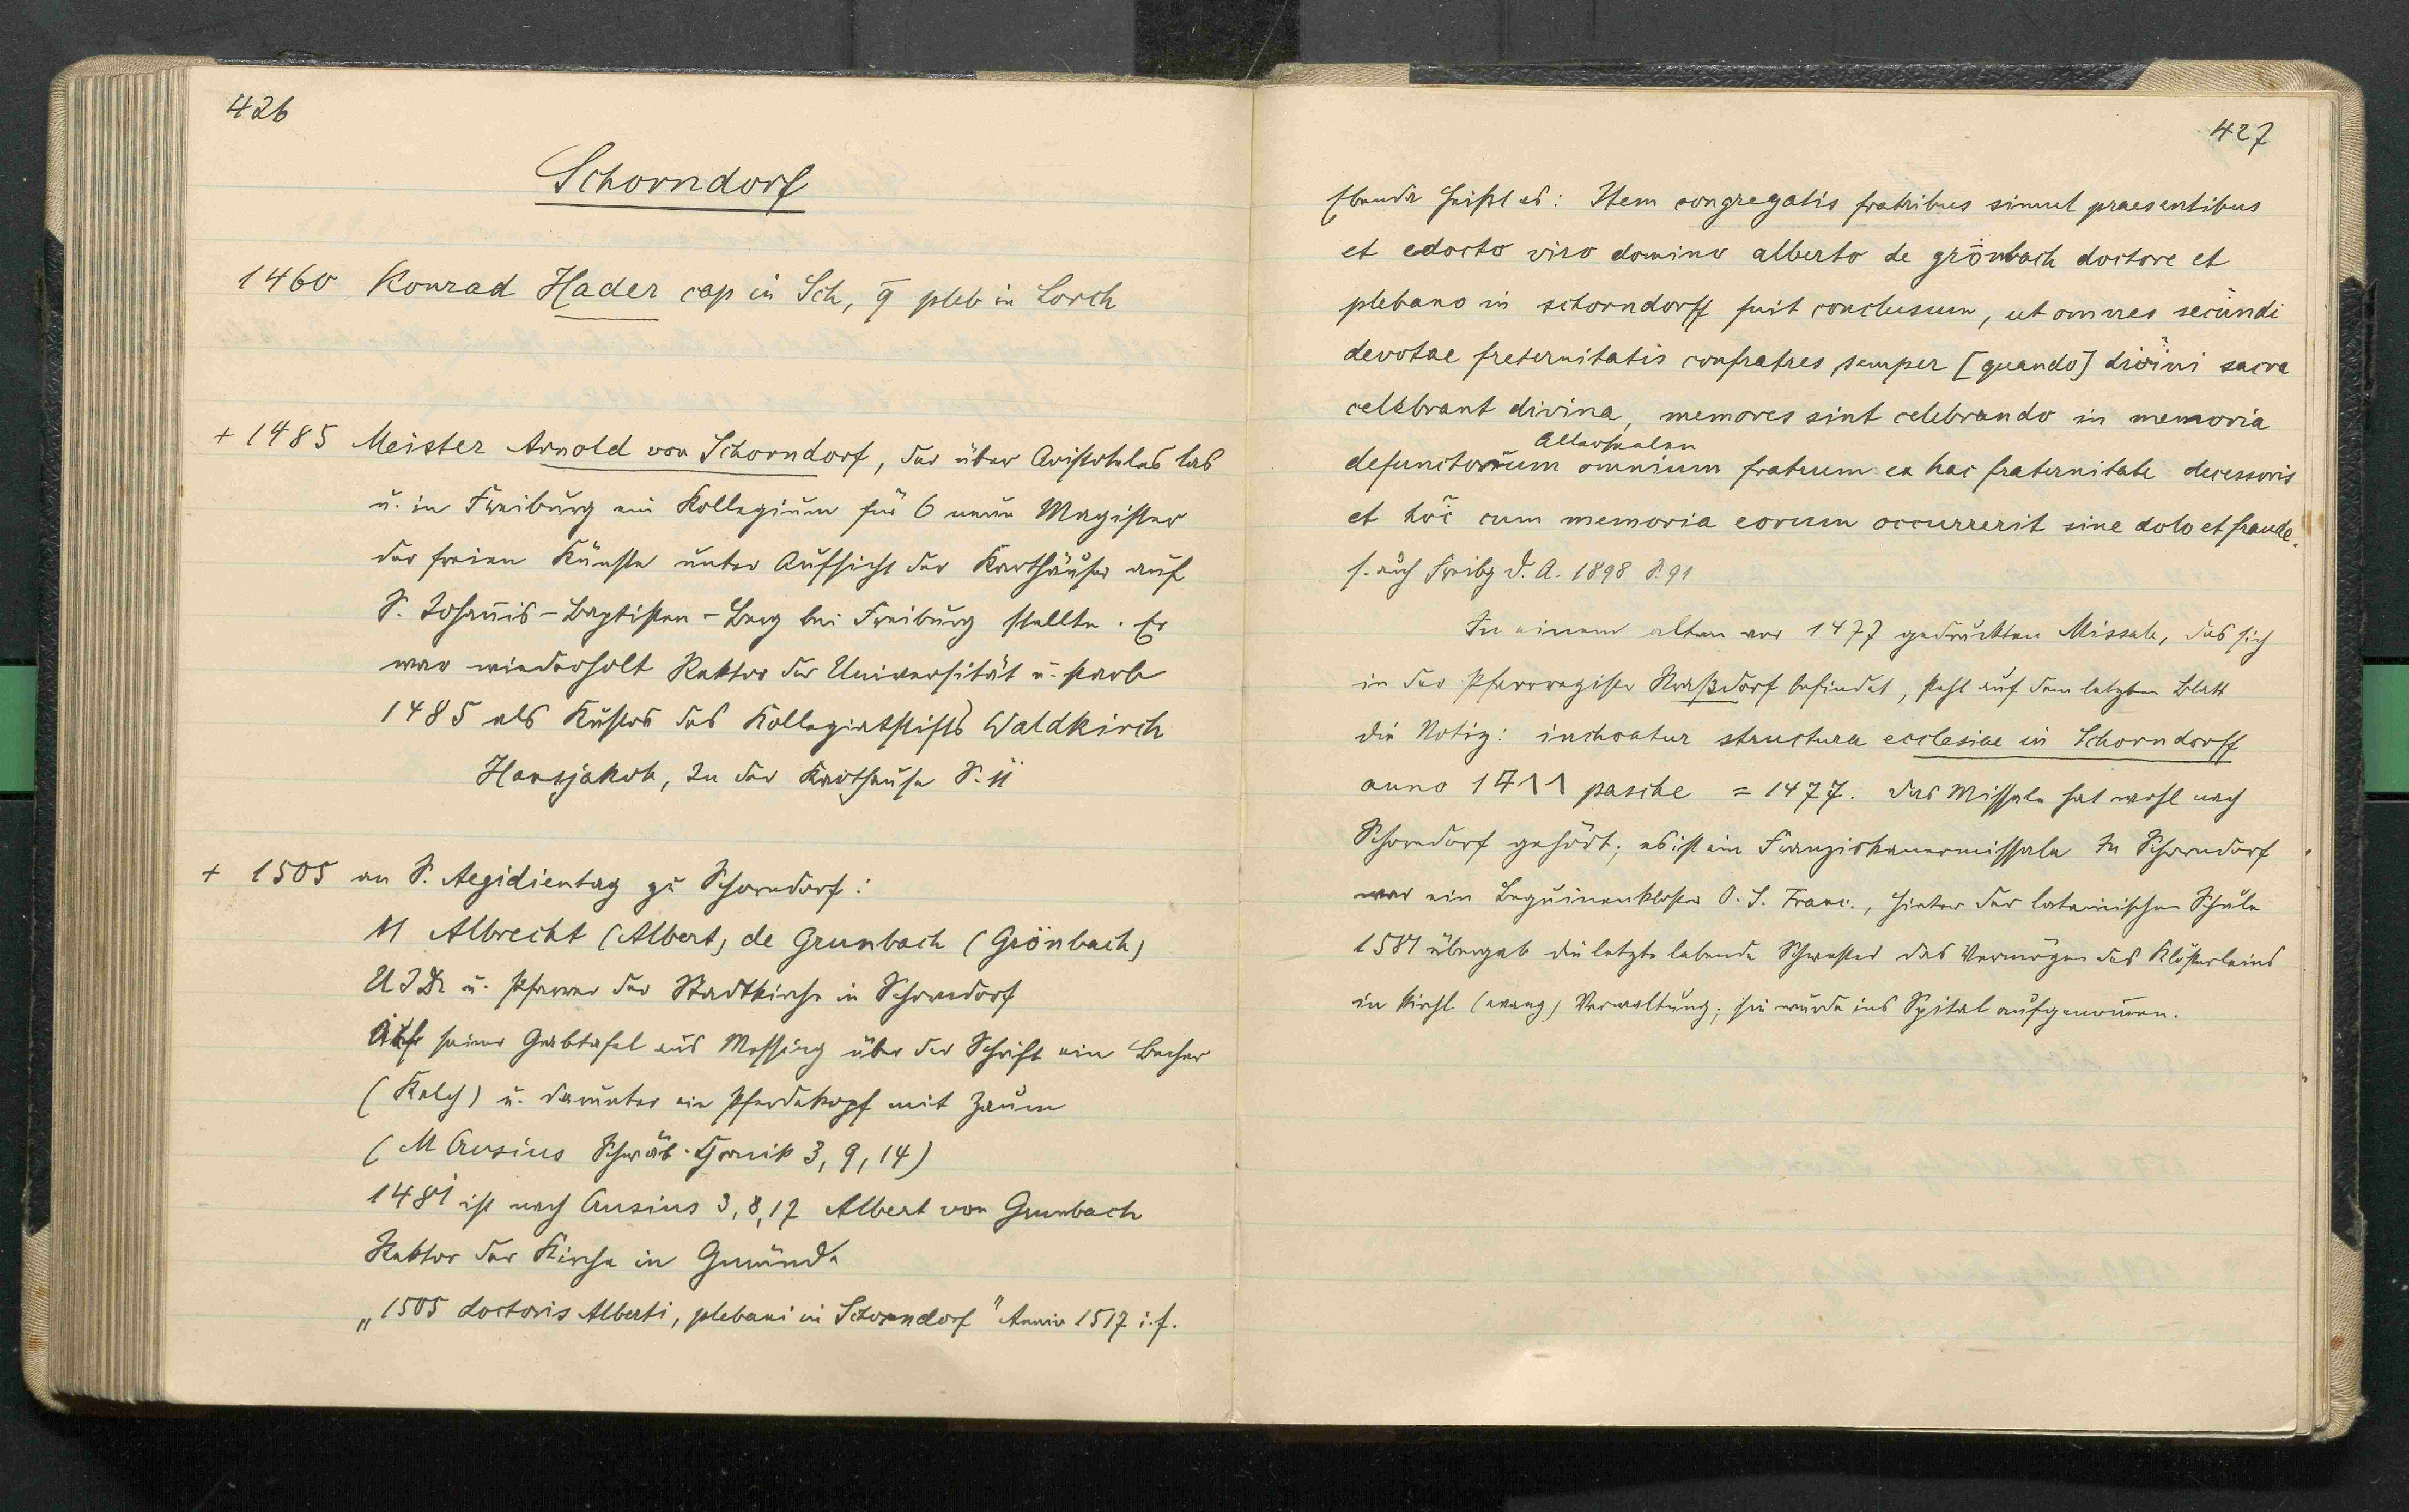 426
Schorndorf
1460 Konrad Hader cap in Sch, q̄ pleb in Lorch
+ 1485 Meister Arnold von Schorndorf, der über Aristoteles las
u. in Freiburg ein Kollegium für 6 neue Magister
der freien Künste unter Aufsicht der Karthäuser auf
S. Johannis-Baptisten-Berg bei Freiburg stellte. Er
war wiederholt Rektor der Universität u. starb
1485 als Kustos des Kollegiatstifts Waldkirch
Hansjakob, In der Karthause S. 11
+ 1505 an S. Aegidientag zu Schorndorf:
M Albrecht (Albert) de Grunbach (Grönbach)
U J Dr u. Pfarrer der Stadtkirche in Schorndorf
Auf seiner Grabtafel aus Messing über der Schrift ein Becher
(Kelch) u. darunter ein Pferdekopf mit Zaum
(M Crusius Schwäb. Chronik 3, 9, 14)
1481 ist nach Crusius 3, 8, 17 Albert von Grunbach
Rektor der Kirche in Gmünd.
„1505 doctoris Alberti, plebani in Schorndorf" Anniv 1517 i. f.
427
Ebenda heißt es: Item congregatis fratribus simul praesentibus
et edocto viro domino alberto de grönbach doctore et
plebano in schorndorff fuit conclusum, ut omnes secundi
devotae freternitatis confratres semper [quando] divini sacra
celebrant divina, memores sint celebrando in memoria
Allerseelen
defunctorum omnium fratrum ex hac fraternitate decessoris
et hoc cum memoria eorum occurrerit sine dolo et fraude.
s. auch Freibg D. A. 1898 S. 91
In einem alten vor 1477 gedruckten Missale, das sich
in der Pfarrregister Straßdorf befindet, steht auf dem letzten Blatt
die Notiz: inchoatur structura ecclesiae in Schorndorff
anno 14ΛΛ pasche = 1477. Das Missale hat wohl nach
Schorndorf gehört; es ist ein Franziskanermissale In Schorndorf
war ein Beguinenkloster O. S. Franc., hinter der lateinischen Schule
übergab die letzte lebende Schwester das Vermögen des Klösterleins
in kirchl (evang) Verwaltung; sie wurde ins Spital aufgenommen.